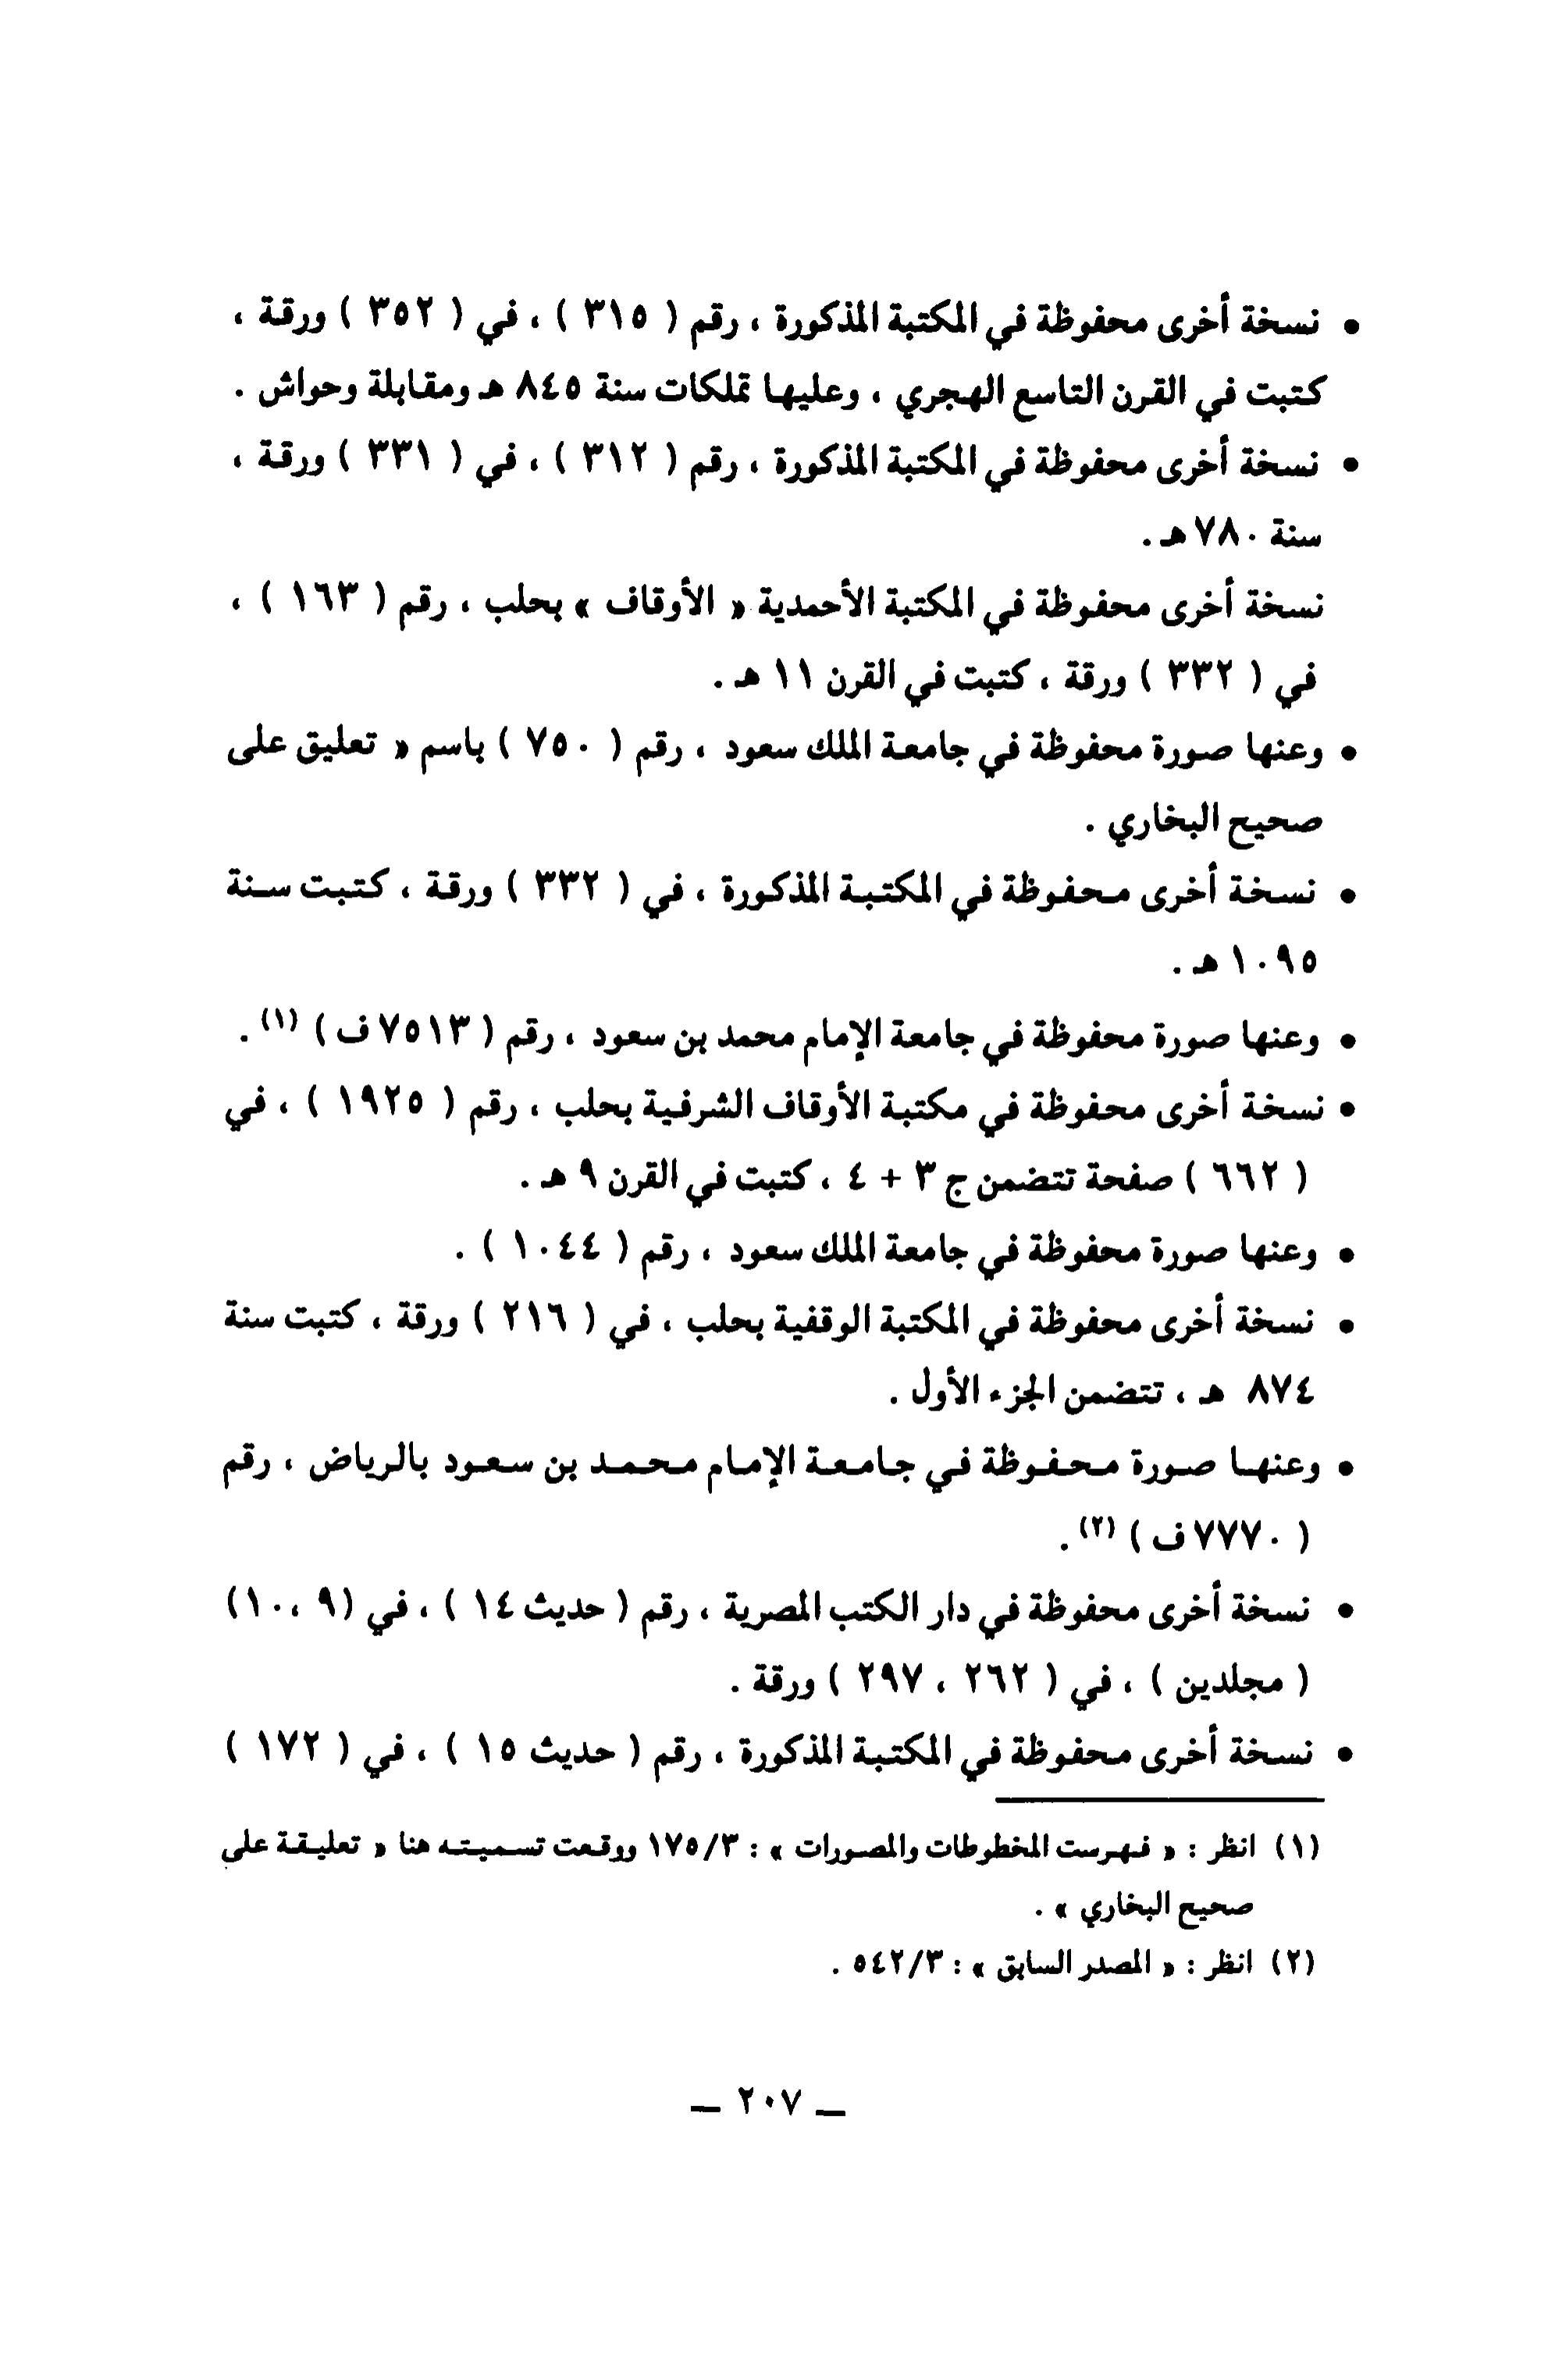 • نسخة أخرى محفوظة في المكتبة المذكورة ، رقم ( ٣١٥ ) ، في ( ٣٥٢ ) ورقة ،
كتبت في القرن التاسع الهجري ، وعليها تملكات سنة ٨٤٥ هـ ومقابلة وحواش .
• نسخة أخرى محفوظة في المكتبة المذكورة ، رقم ( ٣١٢ ) ، في ( ٣٣١ ) ورقة ،
سنة ٧٨٠ هـ .
نسخة أخرى محفوظة في المكتبة الأحمدية « الأوقاف » بحلب ، رقم ( ١٦٣ ) ،
في ( ٣٣٢ ) ورقة ، كتبت في القرن ١١ هـ .
• وعنها صورة محفوظة في جامعة الملك سعود ، رقم ( ٧٥٠ ) باسم « تعليق على
صحيح البخاري .
• نسخة أخرى محفوظة في المكتبة المذكورة ، في ( ٣٣٢ ) ورقة ، كتبت سنة
١٠٩٥ هـ .
• وعنها صورة محفوظة في جامعة الإمام محمد بن سعود ، رقم ( ٧٥١٣ ف ) (١) .
• نسخة أخرى محفوظة في مكتبة الأوقاف الشرفية بحلب ، رقم ( ١٩٢٥ ) ، في
( ٦٦٢ ) صفحة تتضمن ج ٣ + ٤ ، كتبت في القرن ٩ هـ .
• وعنها صورة محفوظة في جامعة الملك سعود ، رقم ( ١٠٤٤ ) .
• نسخة أخرى محفوظة في المكتبة الوقفية بحلب ، في ( ٢١٦ ) ورقة ، كتبت سنة
٨٧٤ هـ ، تتضمن الجزء الأول .
• وعنها صورة محفوظة في جامعة الإمام محمد بن سعود بالرياض ، رقم
( ٧٧٧٠ ف ) (٢) .
• نسخة أخرى محفوظة في دار الكتب المصرية ، رقم ( حديث ١٤ ) ، في (٩ ،١٠)
( مجلدين ) ، في ( ٢٦٢ ، ٢٩٧ ) ورقة .
• نسخة أخرى محفوظة في المكتبة المذكورة ، رقم ( حديث ١٥ ) ، في ( ١٧٢ )
(١) انظر : « فهرست المخطوطات والمصورات » : ٣/١٧٥ ووقعت تسميته هنا « تعليقة على
صحيح البخاري » .
(٢) انظر : « المصدر السابق » : ٣/٥٤٢ .
ــ ٢٠٧ ــ